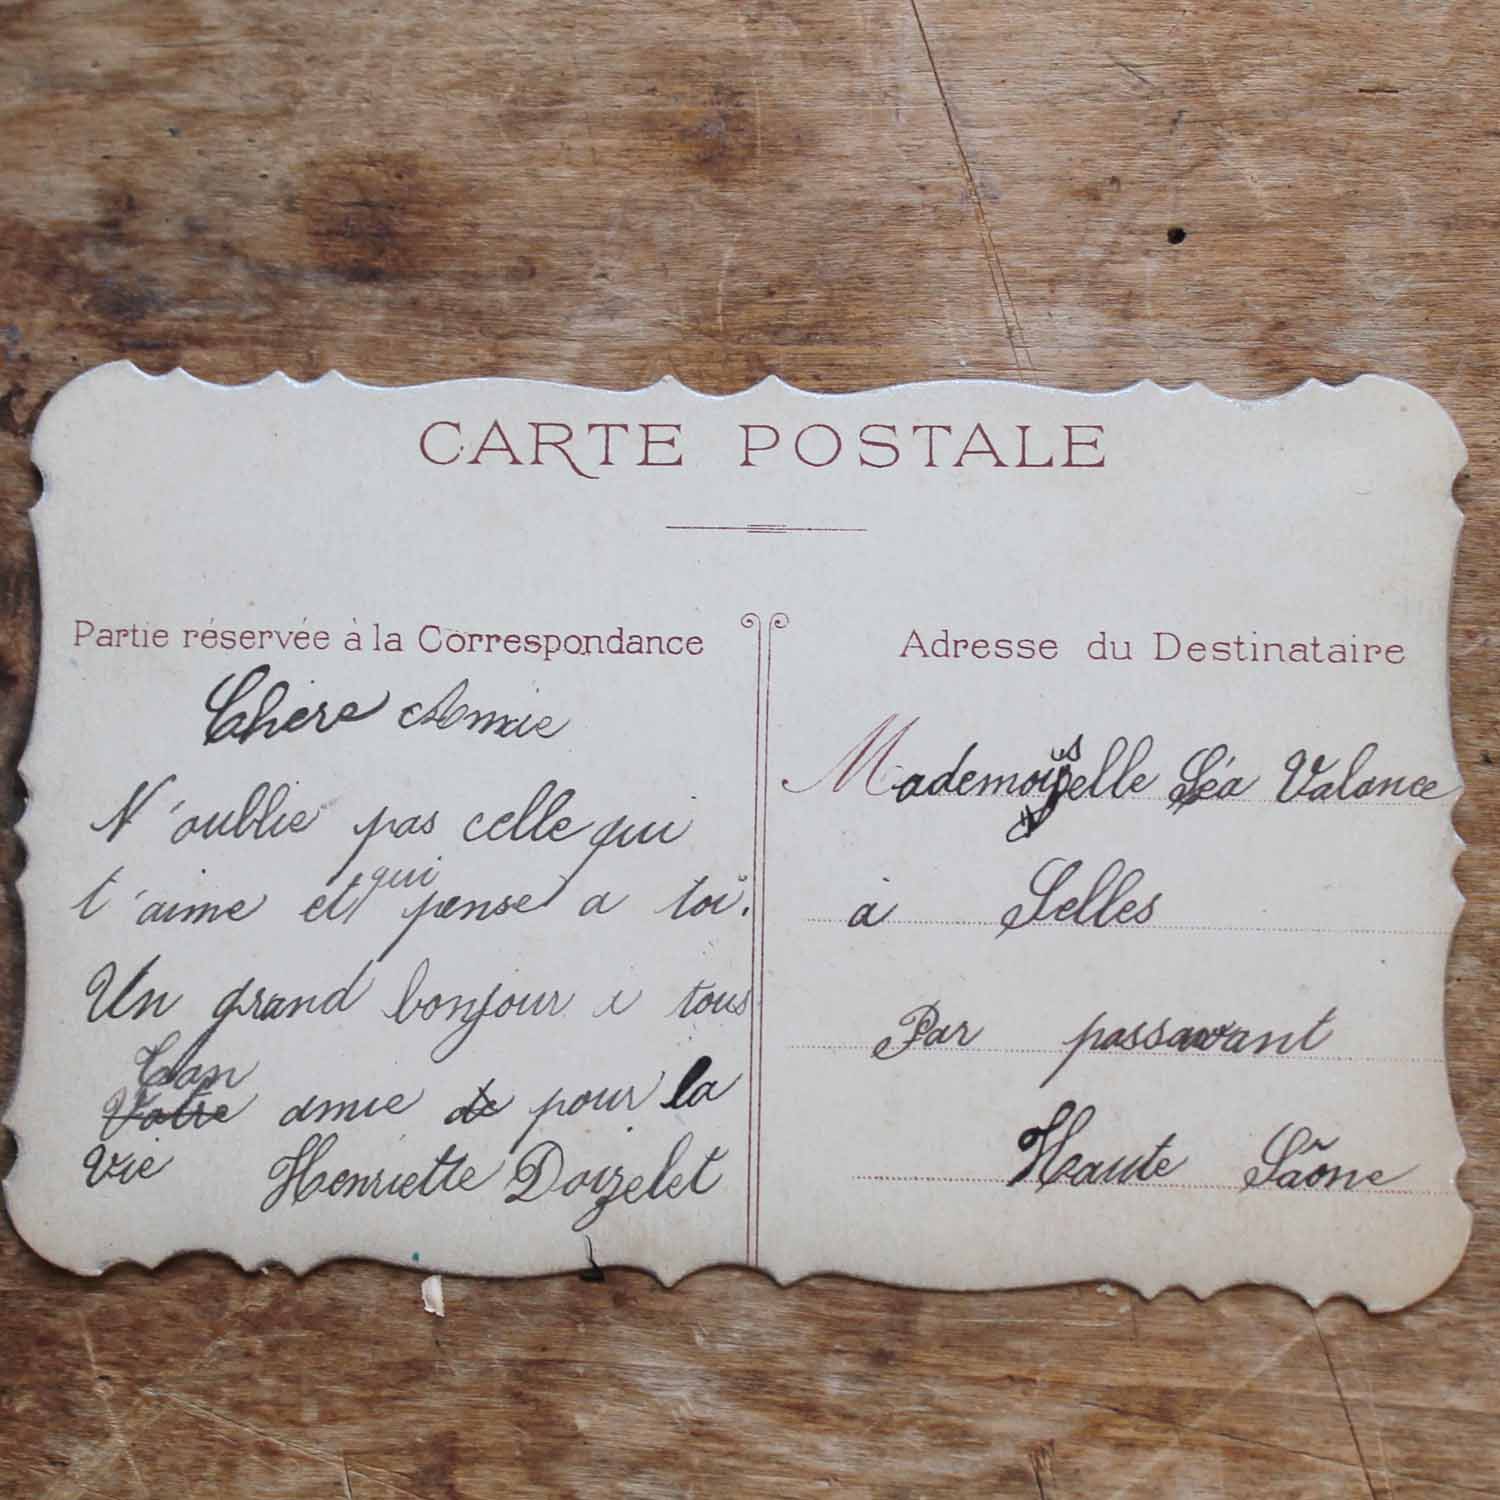 CARTE POSTALE
Partie réservée à la Correspondance
Chère Amie
N'oublie pas celle qui
t'aime et qui pense a toi.
Un grand bonjour a tous
Ton
Votre amie de pour la
vie Henriette Doizelet
Adresse du Destinataire
Mademoiselle Léa Valance
à Selles
Par passavant
Haute Saône